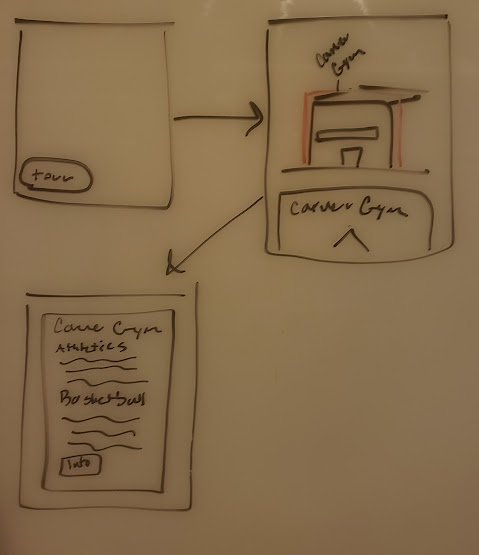 tour
Carver
Gym
Carver Gym
Carver Gym
Athletics
Basketball
Info